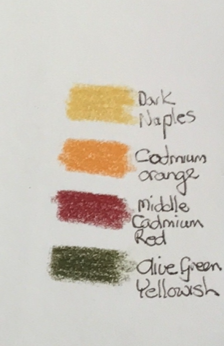 Dark
Naples
Cadmium
orange
Middle
Cadmium
Red
Olive Green
Yellowish